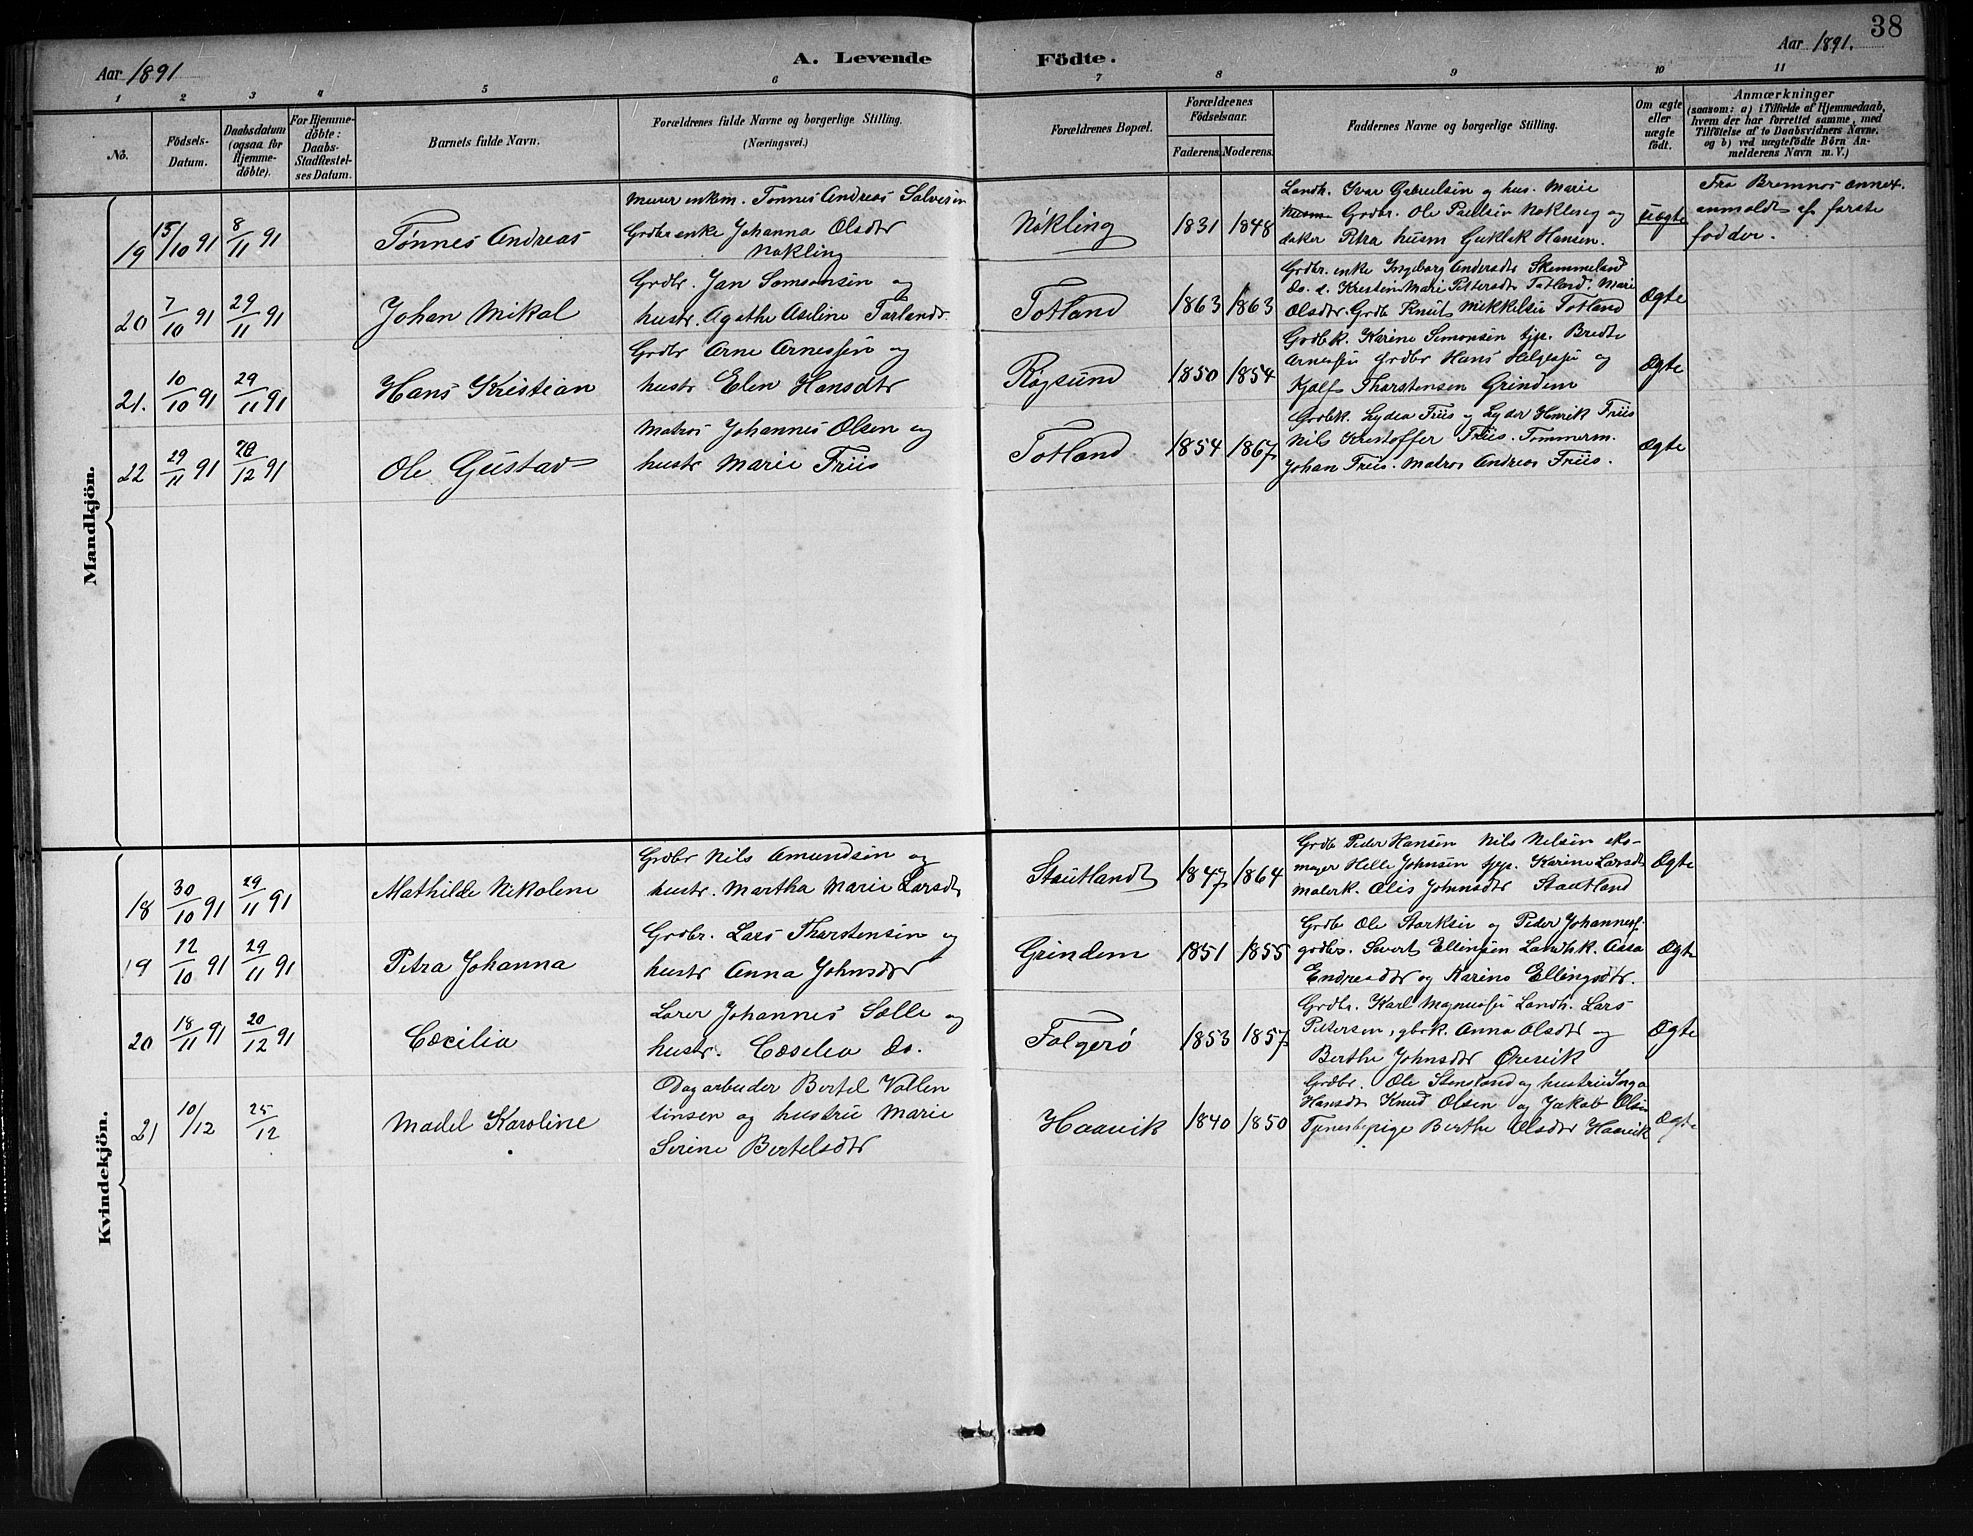 38
Aar 1891
A. Levende
Födte.
Aar 1891.
1 2 3 4 5 6 7 8 9 10 11
No.
Födsels-Datum.
Daabsdatum (ogsaa for Hjemme-döbte).
For Hjemme-döbte: Daabs-Stadfæstel-ses Datum.
Barnets fulde Navn.
Forældrenes fulde Navne og borgerlige Stilling. (Næringsvei.)
Forældrenes Bopæl.
Forældrenes Födselsaar.
Faderens. Moderens.
Faddernes Navne og borgerlige Stilling.
Om ægte eller uægte födt.
Anmærkninger
(saasom: a) i Tilfælde af Hjemmedaab, hvem der har forrettet samme, med Tilföielse af to Daabsvidners Navne, og b) ved uægtefödte Börn An-melderens Navn m. V.)
Mandkjön.
19 15/10 91 8/11 91 Tønnes Andreas
Murer enkem. Tønnes Andreas Salvesen
Grdbr enke Johanna Olsdtr
Nökling
Nökling 1831 1848
Landh. Ivar Gabrielsen og hus. Marie
Grdbr. Ole Paulsen Nökling og
Petra husm Hansen.
uægte
Fra Bremnes annex.
anmeldt af første
fadder.
20 7/10 91 29/11 91 Johan Mikal
Grdbr. Jan Samsonsen og
hustr. Agathe Aseline Tarlandsdr.
Totland 1863 1863
Grdbr. enke Ingeborg Andersdtr Skemmeland
Ds. d. Kristine Marie Pettersdtr Totland. Marie
Olsdtr. Grdb Knut Mikkelsen Totland
Ægte
21. 10/10 91 29/11 91 Hans Kristian
Grdbr Arne Arnessen og
hustr Elen Hansdtr
Røgsund 1850 1854
Grdbk. Karine Simonsen tjp. Bredte
Arnessen Grdbr Hans Helgesen og
Thorstensen Grindem
Ægte
22 29/11 91 26/12 91 Ole Gustav
Matros Johannes Olsen og
hustr Marie Friis
Totland 1854 1867
Grdbk. Lydea Friis og Lyder Henrik Friis
Nils Kristoffer Friis. Tommerm.
Johan Friis. Matros Andreas Friis.
Ægte
Kvindekjön.
18 30/10 91 29/11 91 Mathilde Nikoline
Grdbr Nils Amundsen og
hustr. Martha Marie Larsdtr
Stautland 1847 1864
Grdb Peder Hansen Nils Nilsen sko-
mager Helle Johnsen tjp. Karine Larsdtr
Johnsdtr Stautland
Ægte
19 12/10 91 29/11 91 Petra Johanna
Grdbr. Lars Tharstensen og
hustr Anna Johnsdtr
Grindem 1851 1855
Grdb Ole Starksen og Peder Johannes.
grdbs. Sivert Ellingsen Landhk. Assa
Endresdtr og Karine Ellingsdtr.
Ægte
20 18/11 91 20/12 91 Cæcilia
Lærer Johannes Salle og
hustr. Cæcilia Ds.
Folgerø 1853 1857
Grdbr. Karl Magnussen Landh. Lars
Petersen, gbrk. Anna Olsdtr og
Berthe Johnsdtr Øresvik
Ægte
21 10/12 25/12 Madel Karoline
Dagarbeider Bertel Vallen
tinsen og hustrue Marie
Serine Bertelsdtr
Haavik 1840 1850
Grdbr. Ole Stensland og hustrue Inga
Hansdtr Knud Olsen og Jakob Olsen
Tjenestepige Berthe Olsdtr Haavik
Ægte